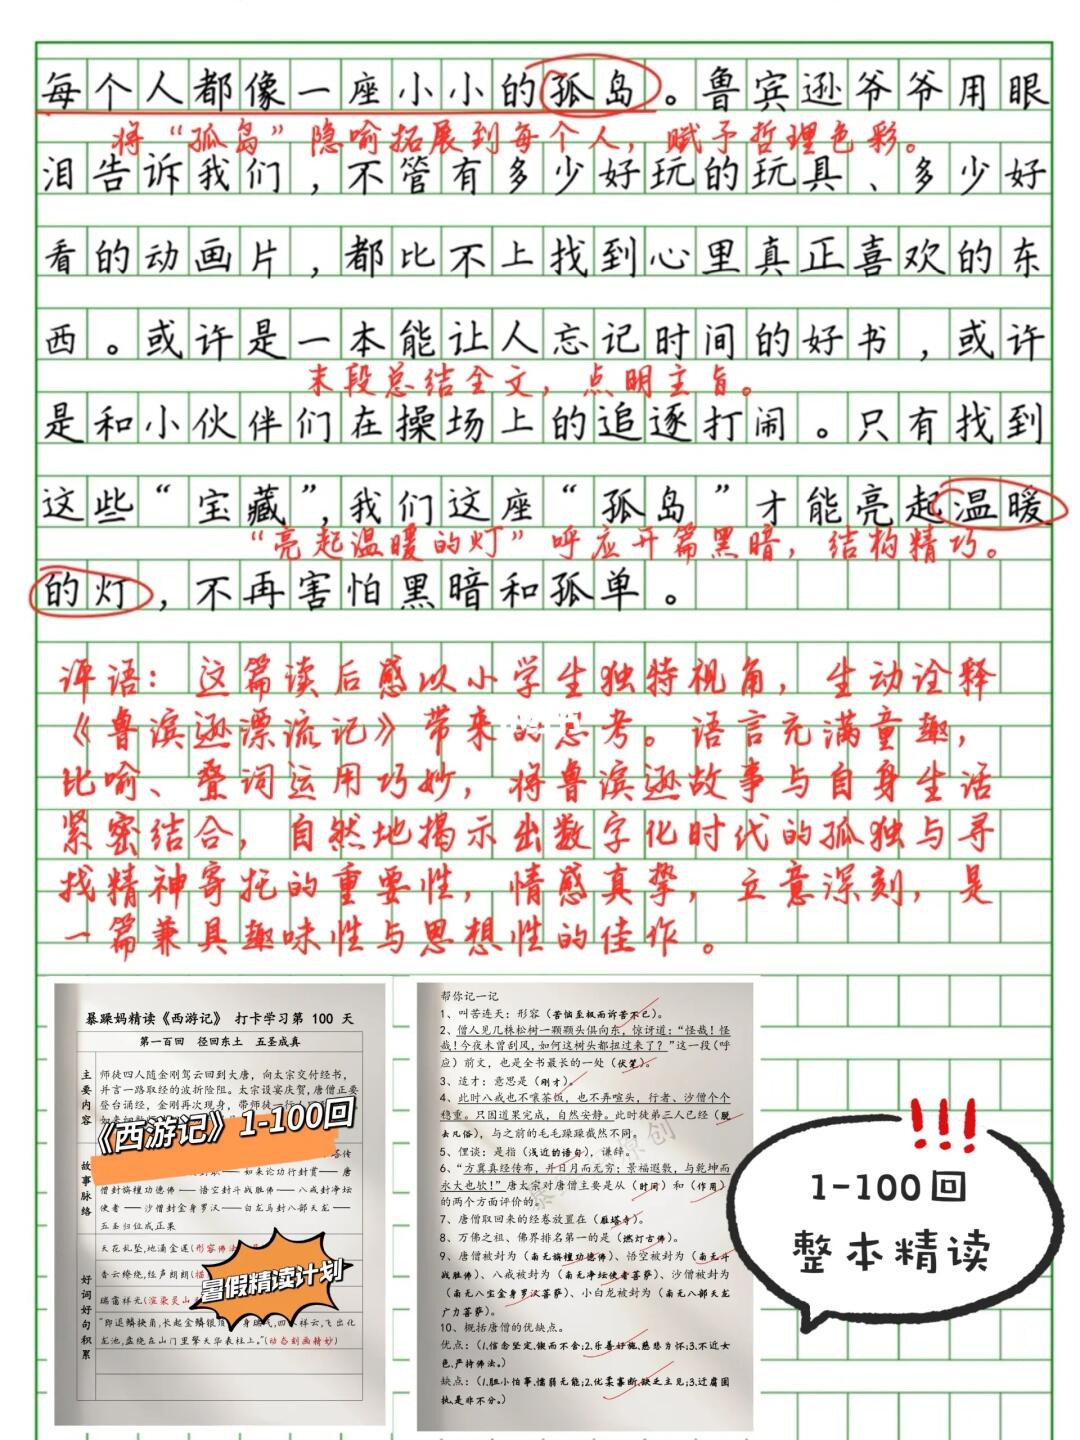 每个人都像一座小小的孤岛。鲁宾逊爷爷用眼
将“孤岛”隐喻拓展到每个人，赋予哲理色彩。
泪告诉我们，不管有多少好玩的玩具、多少好
看的动画片，都比不上找到心里真正喜欢的东
西。或许是一本能让人忘记时间的好书，或许
末段总结全文，点明主旨。
是和小伙伴们在操场上的追逐打闹。只有找到
这些“宝藏”，我们这座“孤岛”才能亮起温暖
“亮起温暖的灯”呼应开篇黑暗，结构精巧。
的灯，不再害怕黑暗和孤单。
评语：这篇读后感以小学生独特视角，生动诠释
《鲁滨逊漂流记》带来的思考。语言充满童趣，
比喻、叠词运用巧妙，将鲁滨逊故事与自身生活
紧密结合，自然地揭示出数字化时代的孤独与寻
找精神寄托的重要性，情感真挚，立意深刻，是
一篇兼具趣味性与思想性的佳作。
暴躁妈精读《西游记》 打卡学习第 100 天
第一百回 径回东土 五圣成真
主要内容
师徒四人随金刚驾云回到大唐，向太宗交付经书，
并言一路取经的波折险阻。太宗设宴庆贺，唐僧正要
登台诵经，金刚再次现身，带师徒一行人
《西游记》1-100回
故事脉络
如来论功行封赏——唐
僧封旃檀功德佛——悟空封斗战胜佛——八戒封净坛
使者——沙僧封金身罗汉——白龙马封八部天龙——
五圣归位成正果
好词好句积累
天花乱坠，地涌金莲（形容佛法
香云缭绕，经声朗朗（描
瑞霭祥光（渲染灵山
暑假精读计划
“即退鳞换角，长起金鳞银
祥云，飞出化
龙池，盘绕在山门里擎天华表柱上。”（动态刻画精妙）
帮你记一记
1、叫苦连天：形容（苦恼至极而诉苦不已）。
2、僧人见几株松树一颗颗头俱向东，惊讶道：“怪哉！怪
哉！今夜未曾刮风，如何这树头都扭过来了？”这一段（呼
应）前文，也是全书最长的一处（伏笔）。
3、适才：意思是（刚才）。
4、此时八戒也不嚷茶饭，也不弄喧头，行者、沙僧个个
稳重。只因道果完成，自然安静。此时徒弟三人已经（脱
去凡俗），与之前的毛毛躁躁截然不同。
5、俚谈：是指（浅近的语句），谦辞。
6、“方冀真经传布，并日月而无穷；景福遐敷，与乾坤而
永大也欤！”唐太宗对唐僧主要是从（时间）和（作用）
的两个方面评价的。
7、唐僧取回来的经卷放置在（雁塔寺）。
8、万佛之祖、佛界排名第一的是（燃灯古佛）。
9、唐僧被封为（南无旃檀功德佛）、悟空被封为（南无斗
战胜佛）、八戒被封为（南无净坛使者菩萨）、沙僧被封为
（南无八宝金身罗汉菩萨）、小白龙被封为（南无八部天龙
广力菩萨）。
10、概括唐僧的优缺点。
优点：（1.信念坚定、锲而不舍；2.乐善好施、慈悲为怀；3.不近女
色、严持佛法。）
缺点：（1.胆小怕事、懦弱无能；2.优柔寡断、缺乏主见；3.迂腐固
执、是非不分。）
!!!
1-100回
整本精读